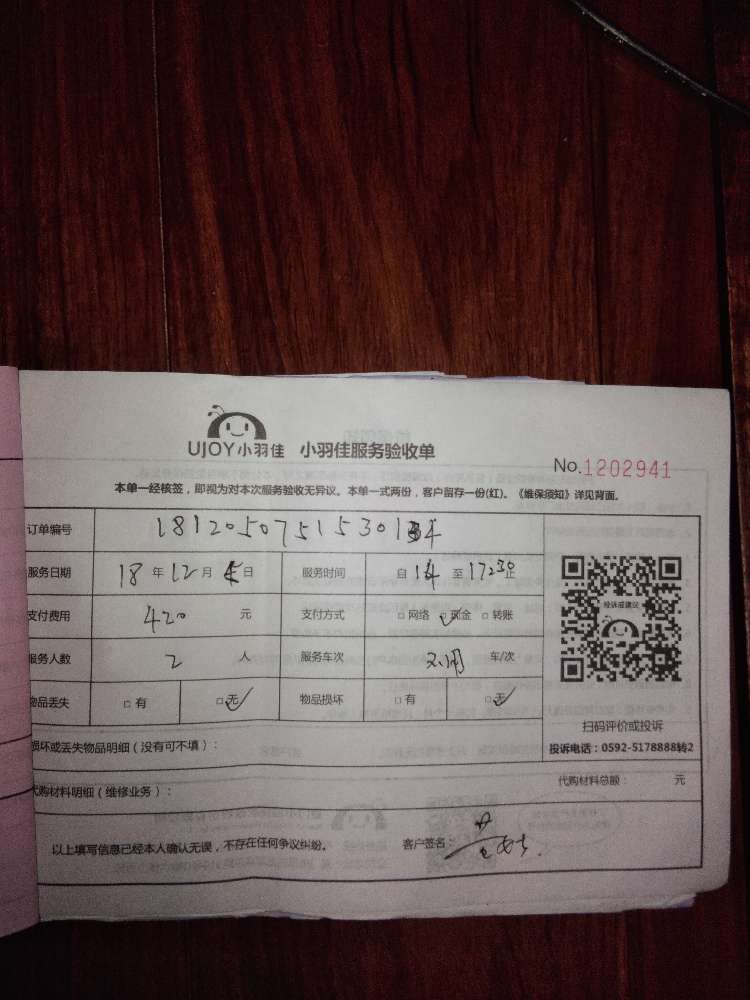 UJOY小羽佳 小羽佳服务验收单
No.1202941
本单一经核签，即视为对本次服务验收无异议。本单一式两份，客户留存一份(红)。《维保须知》详见背面。
订单编号
服务日期 18 年 12 月 日 服务时间 自 14 至 1730 止
支付费用 420 元 支付方式 □ 网络 □ 现金 □ 转账
服务人数 2 人 服务车次 不用 车/次
物品丢失 □ 有 □ 无 物品损坏 □ 有 □ 无
投诉或建议
扫码评价或投诉
投诉电话：0592-5178888转2
损坏或丢失物品明细（没有可不填）：
代购材料总额： 元
代购材料明细（维修业务）：
以上填写信息已经本人确认无误，不存在任何争议纠纷。 客户签名：